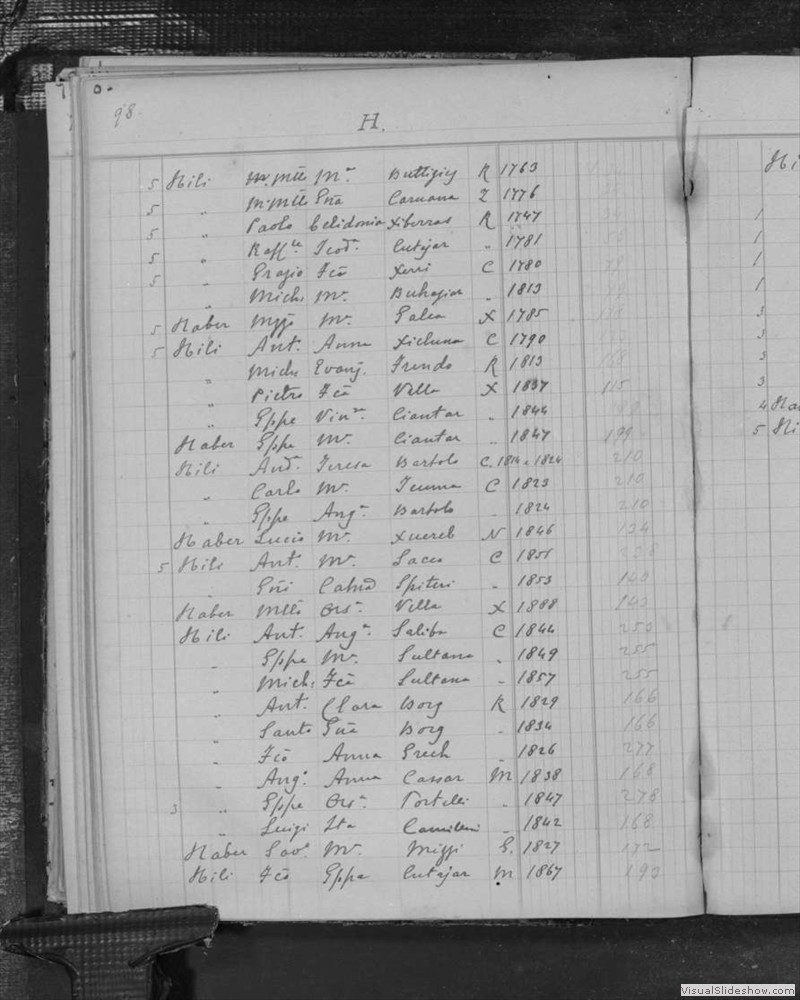 98.
H.
5 Hili M: Mtt Ma Buttigieg R 1763
5 " M: Mtt Caruana Z 1776
5 " Paolo Celidonia Xiberras R 1747
5 " Raffle Teoda Cutajar " 1781
5 " Grazio Fca Xerri C 1780
" Mich Ma Buhagiar " 1813
5 Haber Ma Galea X 1785
5 Hili Ant. Anna Xicluna C 1790
" Mich Evang. Frendo R 1813 168
" Pietro Fca Vella X 1837 115
" Gppe Vinca Ciantar " 1844
Haber Gppe Ma Ciantar " 1847 199
Hili Anda Teresa Bartolo C. 1814 e 1824 210
" Carlo Ma Teuma C 1823 210
" Gppe Anga Bartolo " 1824 210
Haber Lucio Ma Xuereb N 1846 134
5 Hili Ant. Ma Sacco C 1851
" Spiteri " 1853 140
Haber Mtto Orsa Vella X 1888 143
Hili Ant. Anga Saliba C 1844 253
" Gppe Ma Sultana " 1849 255
" Mich. Fca Sultana " 1857 255
" Ant. Clara Borg R 1829 166
" Santo Borg " 1834 166
" Fco Anna Grech " 1826 277
" Ango Anna Cassar M 1838 168
3 " Gppe Orsa Portelli " 1847 278
" Luigi Camilleri " 1842 168
Haber Salve Ma Mizzi G. 1827 172
Hili Fco Gppa Cutajar M 1867 190
Hi
1
1
1
1
3
3
3
3
4 Ha
5 Hi
VisualSlideshow.com